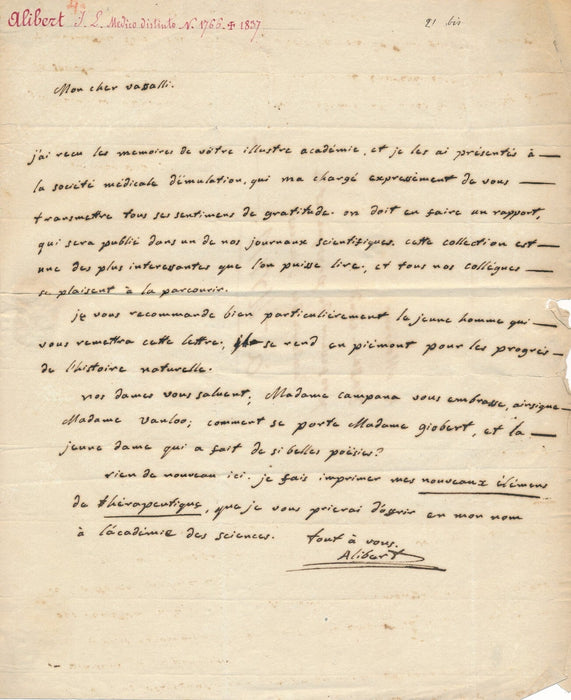 Alibert J. L. Medico distinto N. 1766. + 1837.
21 bis
Mon cher vassalli.
j'ai recu les memoires de vôtre illustre académie, et je les ai présentés à
la société médicale d'émulation, qui m'a chargé expressément de vous
transmettre tous ses sentimens de gratitude. on doit en faire un rapport,
qui sera publié dans un de nos journaux scientifiques. cette collection est
une des plus interessantes que l'on puisse lire, et tous nos collégues
se plaisent à la parcourir.
je vous recommande bien particulièrement le jeune homme qui
vous remettra cette lettre, se rend en piémont pour les progrès
de l'histoire naturelle.
nos dames vous saluent; Madame campana vous embrasse, ainsique
Madame vanloo; comment se porte Madame giobert, et la
jeune dame qui a fait de si belles poësies?
rien de nouveau ici. je fais imprimer mes nouveaux élémens
de thérapeutique, que je vous prierai d'offrir en mon nom
à l'académie des sciences. tout à vous.
Alibert